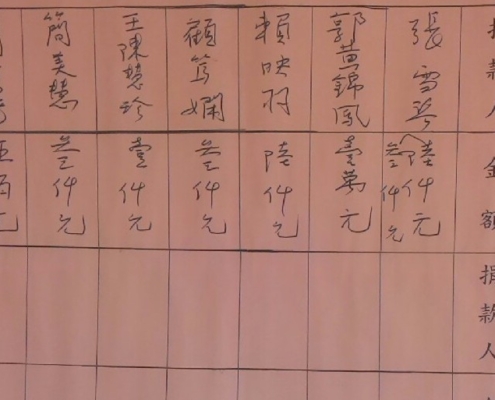 款人
張雪琴
郭黃錦鳳
賴映羽
顧篤嫻
王陳慧珍
簡美慧
金額
陸仟元
叁仟元
壹萬元
陸仟元
叁仟元
壹仟元
叁仟元
捐款人